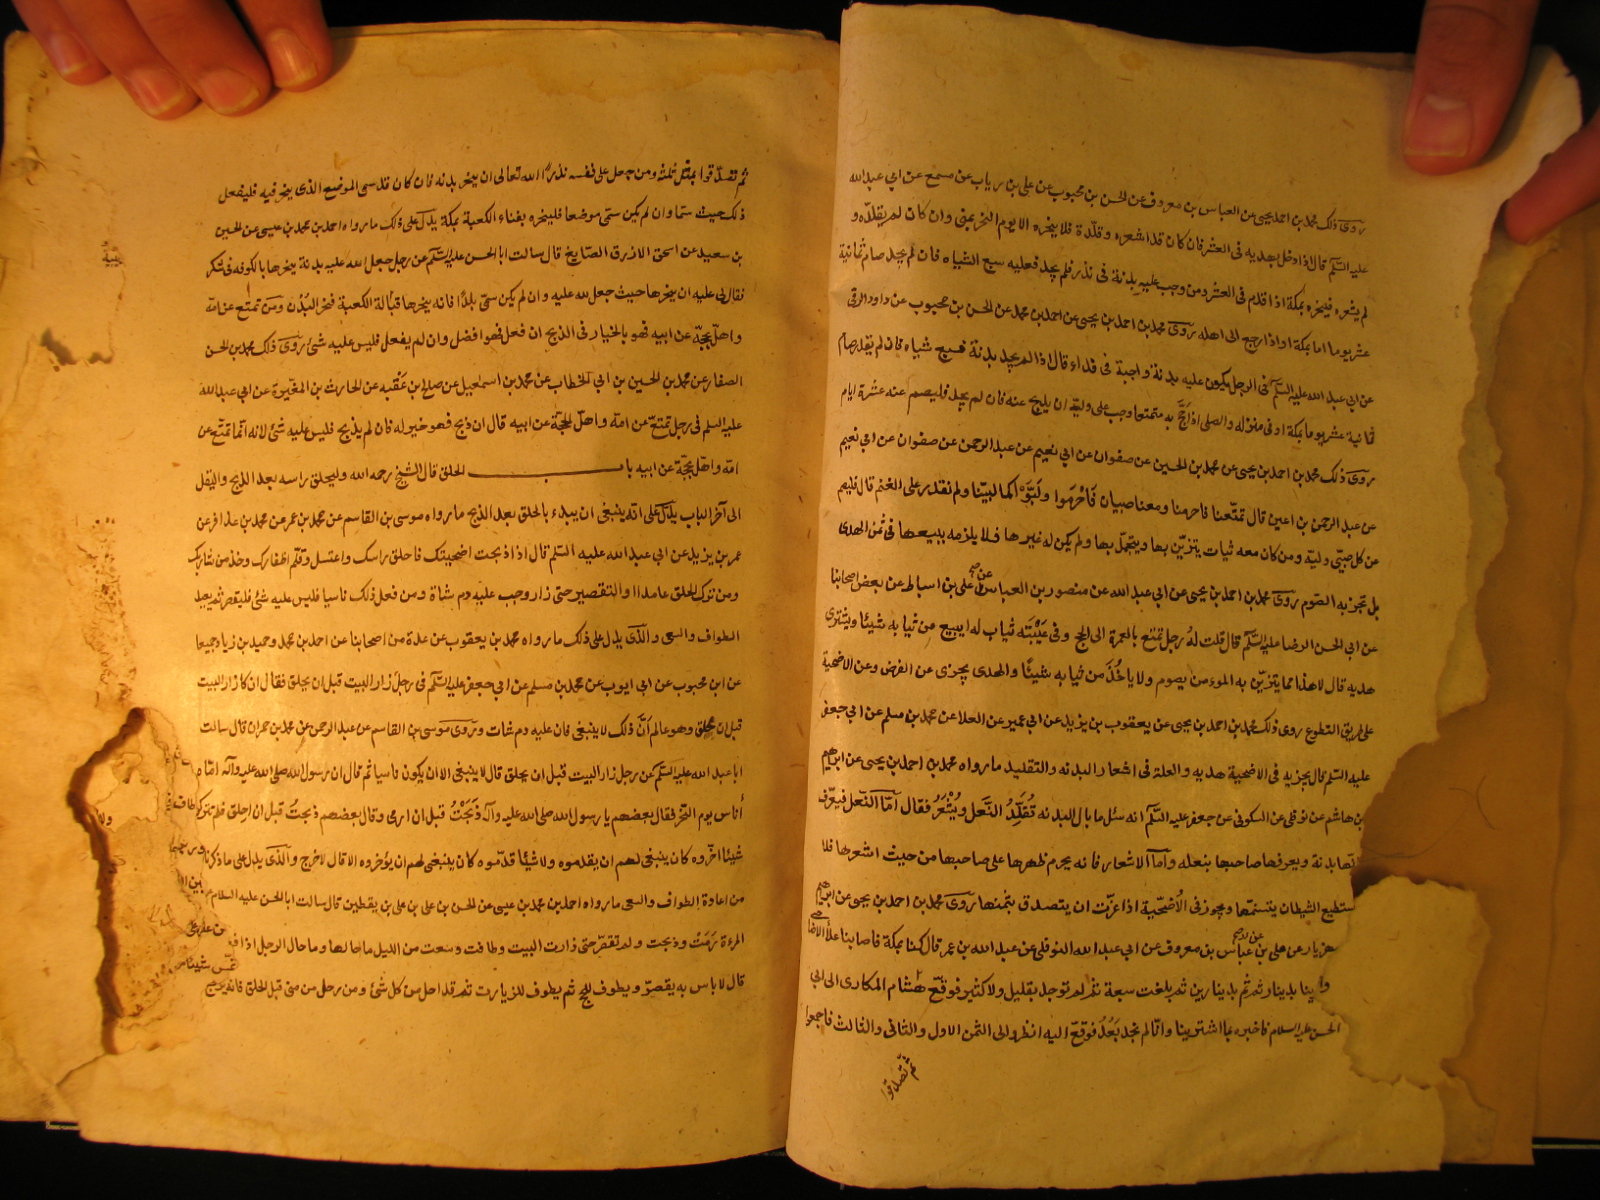 روى ذلك محمد بن احمد بن يحيى عن العباس بن معروف عن الحسن بن محبوب عن على بن رياب عن مسمع عن ابي عبد الله
عليه السلم قال اذا دخل بهديه فى العشر فان كان قد اشعره وقلده فلا ينحره الا يوم النحر بمنى وان كان لم يقلده و
لم يشعره فينحره بمكة اذا قدم فى العشر ومن وجب عليه بدنة فى نذر فلم يجد فعليه سبع الشياه فان لم يجد صام ثمانية
عشر يوما اما بمكة او اذا رجع الى اهله روى محمد بن احمد بن يحيى عن احمد بن محمد عن الحسن بن محبوب عن داود الرقى
عن ابي عبد الله عليه السلم فى الرجل يكون عليه بدنة واجبة فى فداء قال اذا لم يجد بدنة فسبع شياه فان لم يقدر صام
ثمانية عشر يوما بمكة او فى منزله والصبي اذا حج به متمتعا وجب على وليه ان يذبح عنه فان لم يجد فليصم عنه عشرة ايام
روى ذلك محمد بن احمد بن يحيى عن محمد بن الحسين عن صفوان عن ابي نعيم عن عبد الرحمن عن صفوان عن ابي نعيم
عن عبد الرحمن بن اعين قال تمتعنا فاحرمنا ومعنا صبيان فاحرموا ولبوا كما لبينا ولم نقدر على الغنم قال فليصم
عن كل صبي وليه ومن كان معه ثياب يتزين بها ويتجمل بها ولم يكن له غيرها فلا يلزمه ببيعها فى ثمن الهدى
بل تجزيه الصوم روى محمد بن احمد بن يحيى عن ابي عبد الله عن منصور بن العباس عن على بن اسباط عن بعض اصحابنا
عن ابي الحسن الرضا عليه السلم قال قلت له رجل تمتع بالعمرة الى الحج وفى عيبته ثياب له ايبيع من ثيابه شيئا ويشترى
هديه قال لا هذا مما يتزين به المومن يصوم ولا ياخذ من ثيابه شيئا والهدى يجزى عن الفرض وعن الاضحية
على طريق التطوع روى ذلك محمد بن احمد بن يحيى عن يعقوب بن يزيد عن ابي عمير عن العلا عن محمد بن مسلم عن ابي جعفر
عليه السلم قال يجزيه فى الاضحية هديه والعلة فى اشعار البدنه والتقليد ما رواه محمد بن احمد بن يحيى عن ابرهيم
بن هاشم عن نوفلى عن السكونى عن جعفر عليه السلم انه سئل ما بال البدنه تقلد النعل ويشعر فقال اما النعل فيعرف
انها بدنة ويعرفها صاحبها بنعله واما الاشعار فانه يحرم ظهرها على صاحبها من حيث اشعرها فلا
يستطيع الشيطان يتسنمها ويجوز فى الاضحية اذا عزت ان يتصدق بثمنها روى محمد بن احمد بن يحيى عن ابرهيم
بن مهزيار عن على بن عباس بن معروف عن ابي عبد الله النوفلى عن عبد الله بن عمر قال كنا بمكة فاصابنا غلا الاضاحى
بدينار ثم بدينارين ثم بلغت سبعة ثم لم توجد بقليل ولا كثير فوقع هشام المكارى الى ابي
الحسن عليه السلام فاخبره بما اشترينا وانا لم نجد بعد فوقع اليه انظروا الى الثمن الاول والثانى والثالث فاجمعوا
ثم تصدقوا
ثم تصدقوا بمثل ثلثه ومن جعل على نفسه نذرا لله تعالى ان ينحر بدنه فان كان قد سمى الموضع الذى ينحر فيه فليفعل
ذلك حيث سما وان لم يكن سمى موضعا فلينحره بفناء الكعبة بمكة يدل على ذلك ما رواه احمد بن محمد بن عيسى عن الحسين
بن سعيد عن اسحق الازرق الصايغ قال سالت ابا الحسن عليه السلم عن رجل جعل لله عليه بدنة ينحرها بالكوفه فى شكر
فقال لى عليه ان ينحرها حيث جعل لله عليه وان لم يكن سمى بلدا فانه ينحرها قبالة الكعبة منحر البدن ومن تمتع عن امه
واهل بحجة عن ابيه فهو بالخيار فى الذبح ان فعل فهو افضل وان لم يفعل فليس عليه شئ روى ذلك محمد بن الحسن
الصفار عن محمد بن الحسين بن ابي الخطاب عن محمد بن اسمعيل عن صالح بن عقبه عن الحارث بن المغيرة عن ابي عبد الله
عليه السلم فى رجل تمتع عن امه واهل بحجة عن ابيه قال ان ذبح فهو خير له فان لم يذبح فليس عليه شئ لانه انما تمتع عن
امه واهل بحجة عن ابيه باب الحلق قال الشيخ رحمه الله وليحلق راسه بعد الذبح
الى آخر الباب يدل على انه ينبغى ان يبدء بالحلق بعد الذبح ما رواه موسى بن القاسم عن محمد بن عمر عن محمد بن عذافر عن
عمر بن يزيد عن ابي عبد الله عليه السلم قال اذا ذبحت اضحيتك فاحلق راسك واغتسل وقلم اظفارك وخذ من شاربك
ومن ترك الحلق عامدا او التقصير حتى زار وجب عليه دم شاة ومن فعل ذلك ناسيا فليس عليه شئ فليقصر ثم يعيد
الطواف والسعى والذى يدل على ذلك ما رواه محمد بن يعقوب عن عدة من اصحابنا عن احمد بن محمد وحميد بن زياد جميعا
عن ابن محبوب عن ابي ايوب عن محمد بن مسلم عن ابي جعفر عليه السلم فى رجل زار البيت قبل ان يحلق فقال ان كان زار البيت
قبل ان يحلق وهو عالم ان ذلك لا ينبغى فان عليه دم شات وروى موسى بن القاسم عن عبد الرحمن عن محمد بن حمران قال سالت
ابا عبد الله عليه السلم عن رجل زار البيت قبل ان يحلق قال لا ينبغى الا ان يكون ناسيا ثم قال ان رسول الله صلى الله عليه وآله اتاه
أناس يوم النحر فقال بعضهم يا رسول الله صلى الله عليه وآله ذبحت قبل ان ارمى وقال بعضهم ذبحت قبل ان احلق فلم يتركوا
شيئا اخروه كان ينبغى لهم ان يقدموه ولا شيئا قدموه كان ينبغى لهم ان يؤخروه الا قال لا حرج والذى يدل على ما ذكرناه
من اعادة الطواف والسعى ما رواه احمد بن محمد بن عيسى عن الحسن بن على بن يقطين قال سالت ابا الحسن عليه السلام
المرءة رمت وذبحت ولم تقصر حتى زارت البيت وطافت وسعت من الليل ما حالها وما حال الرجل اذا فعل
قال لا باس به يقصر ويطوف للحج ثم يطوف للزيارت ثم قد احل من كل شئ ومن رحل من منى قبل الحلق فانه يرجع